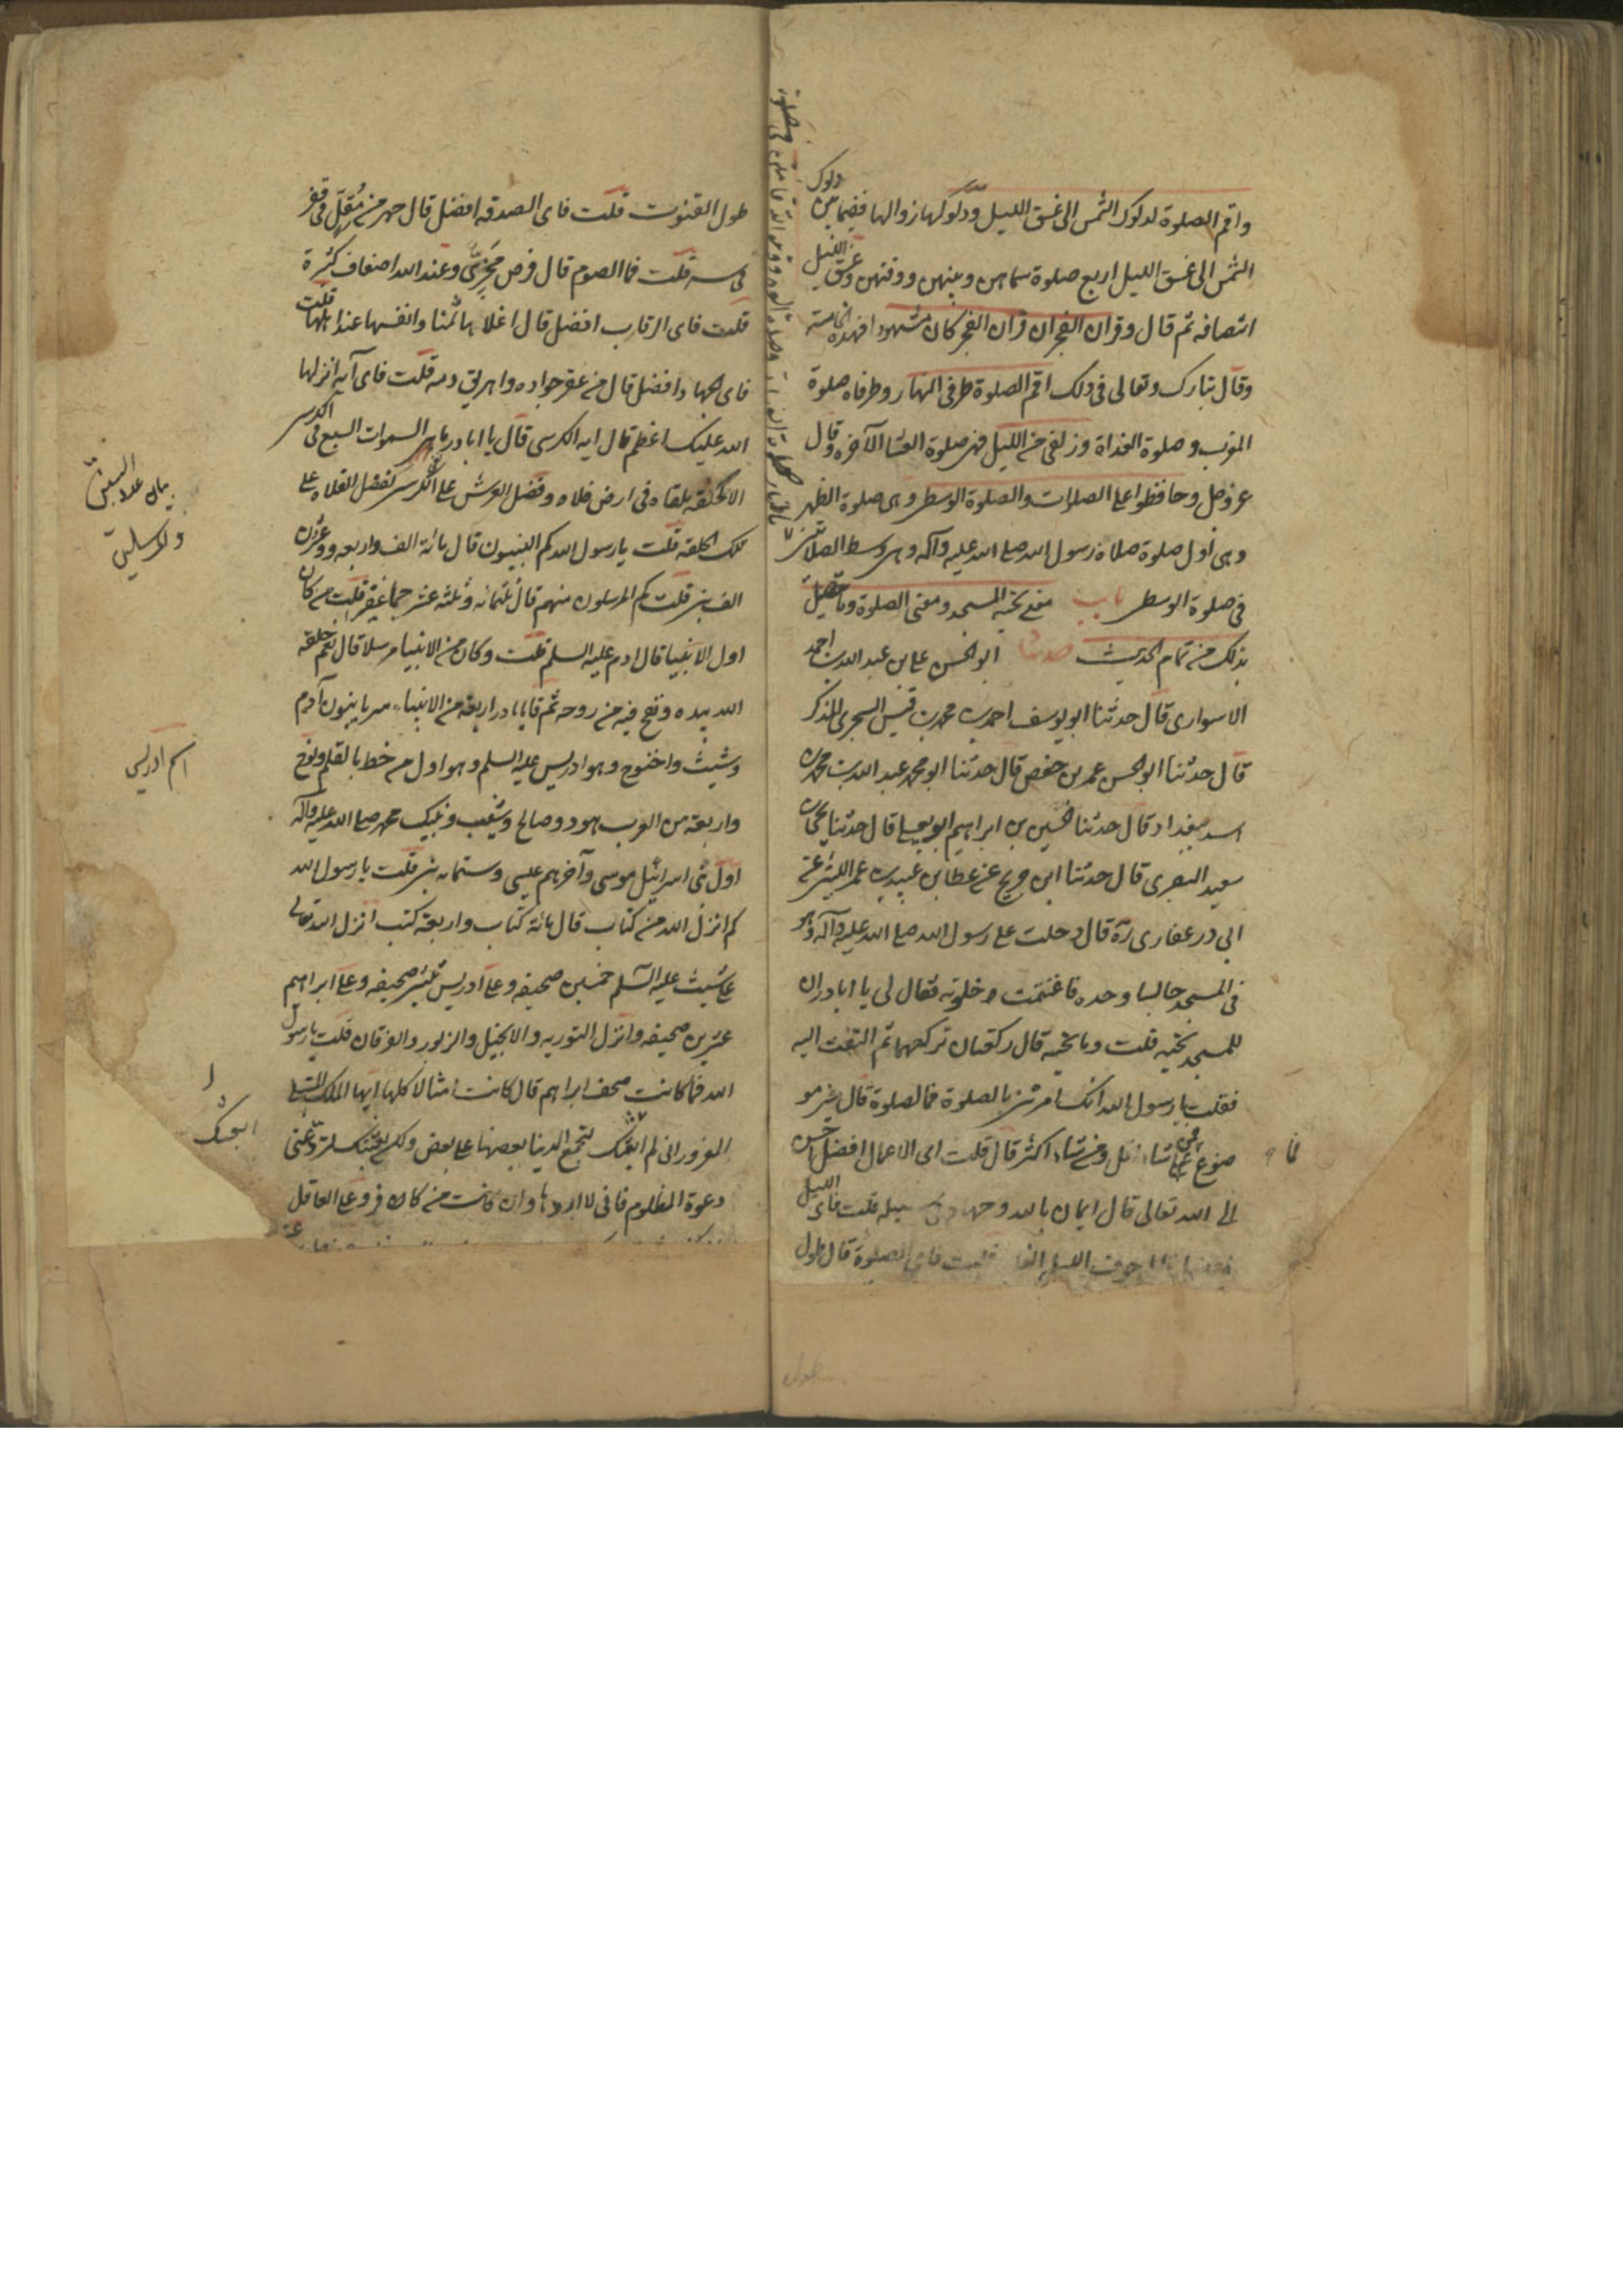 واقم الصلوة لدلوك الشمس الى غسق الليل ودلوكها زوالها ففيما بين دلوك
الشمس الى غسق الليل اربع صلوة سماهن وبينهن ووقتهن وغسق الليل
انتصافه ثم قال وقران الفجر ان قران الفجر كان مشهودا فهذه الخامسة
وقال تبارك وتعالى فى ذلك اقم الصلوة طرفى النهار وطرفاه صلوة
المغرب وصلوة الغداة وزلفى من الليل فهى صلوة العشا الآخره وقال
عز وجل وحافظوا على الصلوات والصلوة الوسطى وهى صلوة الظهر
وهى اول صلوة صلاه رسول الله صلى الله عليه وآله وهى وسط الصلاتين
فى صلوة الوسطى باب معنى تحية المسجد ومعنى الصلوة وما يتصل
بذلك من تمام الحديث حدثنا ابو الحسن على بن عبد الله بن احمد
الاسوارى قال حدثنا ابو يوسف احمد بن محمد بن قيس السجرى المذكر
قال حدثنا ابو الحسن عمر بن حفص قال حدثنا ابو محمد عبد الله بن محمد بن
اسد ببغداد قال حدثنا الحسين بن ابراهيم ابو يعلى قال حدثنا يحيى بن
سعيد البصرى قال حدثنا ابن جريح عن عطا بن عبيد بن عمر الليثى عن
ابى در غفارى ره قال دخلت على رسول الله صلى الله عليه وآله وهو
فى المسجد جالسا وحده فاغتنمت خلوته فقال لى يا ابا در ان
للمسجد تحيه قلت وما تحيه قال ركعتان تركعهما ثم التفت اليه
فقلت يا رسول الله انك امرتنى بالصلوة فما الصلوة قال خير مو
ضوع فمن شا اقل ومن شا اكثر قال قلت اى الاعمال افضل احسن
الى الله تعالى قال ايمان بالله وجهاد فى سبيله قلت فاى الليل
افضل قال جوف الليل قلت فاى الصلوة قال طول
طول القنوت قلت فاى الصدقه افضل قال جهد من مقل فى فقر
فى سر قلت فما الصوم قال فرض مجزى وعند الله اضعاف كثيرة
قلت فاى الرقاب افضل قال اغلاها ثمنا وانفسها عند اهلها قلت
فاى الجهاد افضل قال من عقر جواده واهريق دمه قلت فاى آيه انزلها
الله عليك اعظم قال ايه الكرسى قال يا ابا در ما السموات السبع فى الكرسى
الا كحلقه ملقاه فى ارض فلاه وفضل العرش على الكرسى كفضل الفلاه على
تلك الحلقه قلت يا رسول الله كم النبيون قال مائة الف واربعه وعشرون
الف نبى قلت كم المرسلون منهم قال ثلثمائه وثلثه عشر جما غفير قلت من كان
اول الانبيا قال ادم عليه السلم قلت وكان من الانبيا مرسلا قال نعم خلقه
الله بيده ونفخ فيه من روحه ثم قال يا با در اربعة من الانبياء سريانيون آدم
وشيث واخنوخ وهو ادريس عليه السلم وهو اول من خط بالقلم ونوح
واربعة من العرب هود وصالح وشعيب ونبيك محمد صلى الله عليه وآله
اول نبى اسرائيل موسى وآخرهم عيسى وستمائه نبى قلت يا رسول الله
كم انزل الله من كتاب قال مائة كتاب واربعة كتب انزل الله تعالى
على شيث عليه السلم خمسين صحيفه وعلى ادريس ثلثين صحيفه وعلى ابراهيم
عشرين صحيفه وانزل التوريه والانجيل والزبور والفرقان قلت يا رسول
الله فما كانت صحف ابراهيم قال كانت امثالا كلها ايها الملك المبتلى
المغرور انى لم ابعثك لتجمع الدنيا بعضها على بعض ولكن بعثتك لترد عنى
دعوة المظلوم فانى لا اردها وان كانت من كافر وعلى العاقل
بيان عدد النبيين
والمرسلين
اسم ادريس